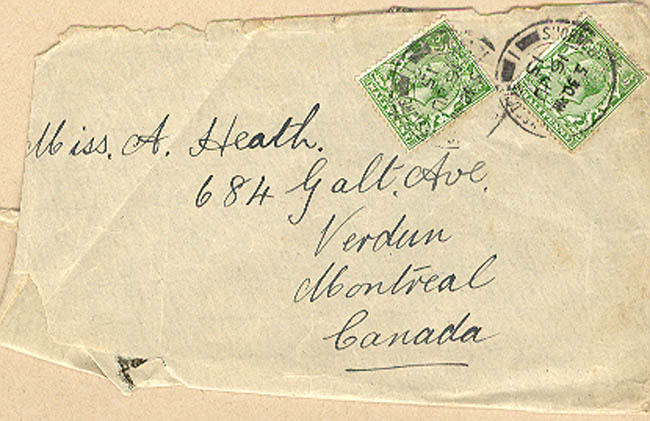 Miss. A. Heath.
684 Galt. Ave.
Verdun
Montreal
Canada